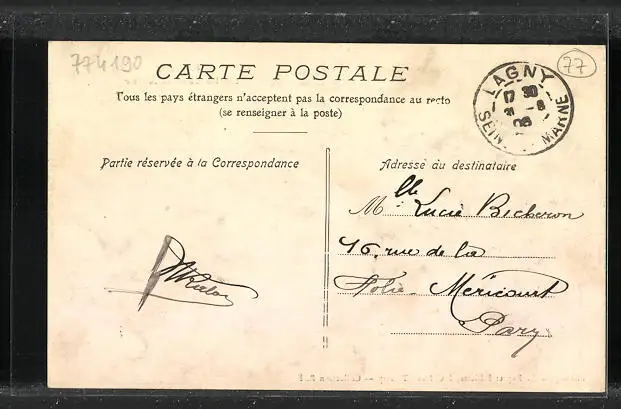 774190
77
CARTE POSTALE
LAGNY
17 30
31 - 8
08
SEINE MARNE
Tous les pays étrangers n'acceptent pas la correspondance au recto
(se renseigner à la poste)
Partie réservée à la Correspondance
Adresse du destinataire
Mlle Lucie Bicheron
46, rue de la
Folie-Méricourt
Paris